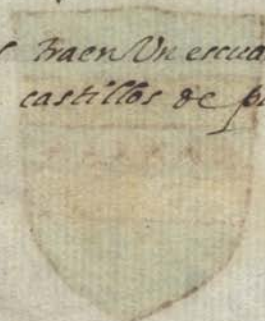 traen Un escu
castillos de